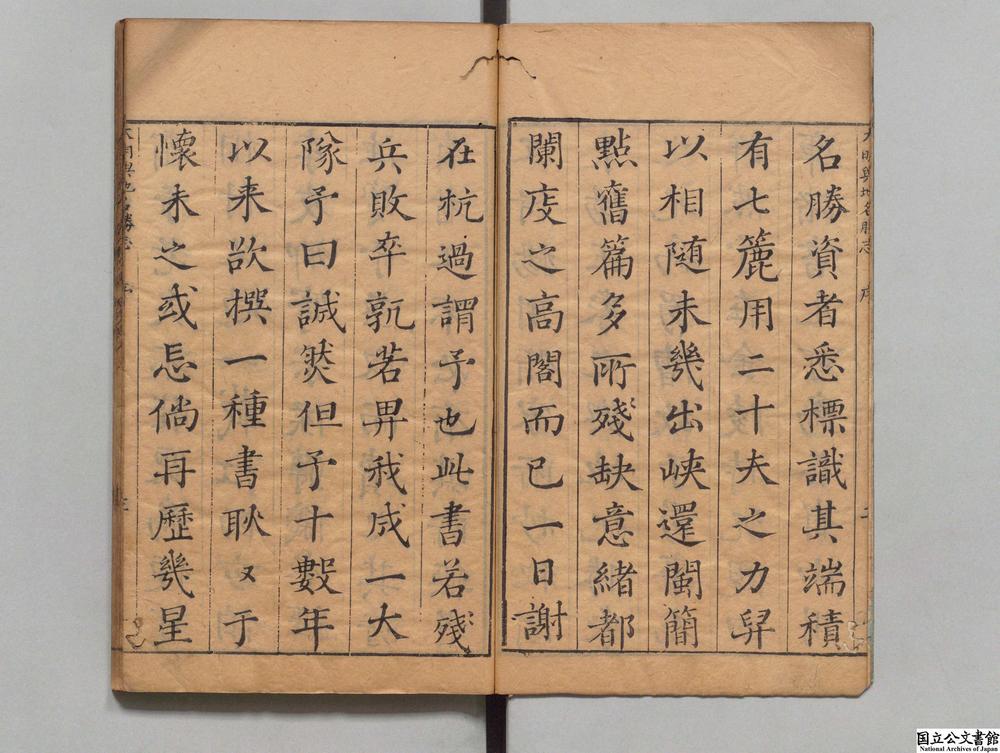 名勝資者悉標識其端積
有七簏用二十夫之力舁
以相随未幾出峽還閩簡
點舊篇多所殘缺意緒都
闌庋之高閣而已一日謝
在杭過謂予也此書若殘
兵敗卒孰若畀我成一大
隊予曰誠然但予十數年
以来欲撰一種書耿〻于
懷未之或忘倘再歷幾星
大明輿地名勝志 序 二
大明輿地名勝志
国立公文書館
National Archives of Japan